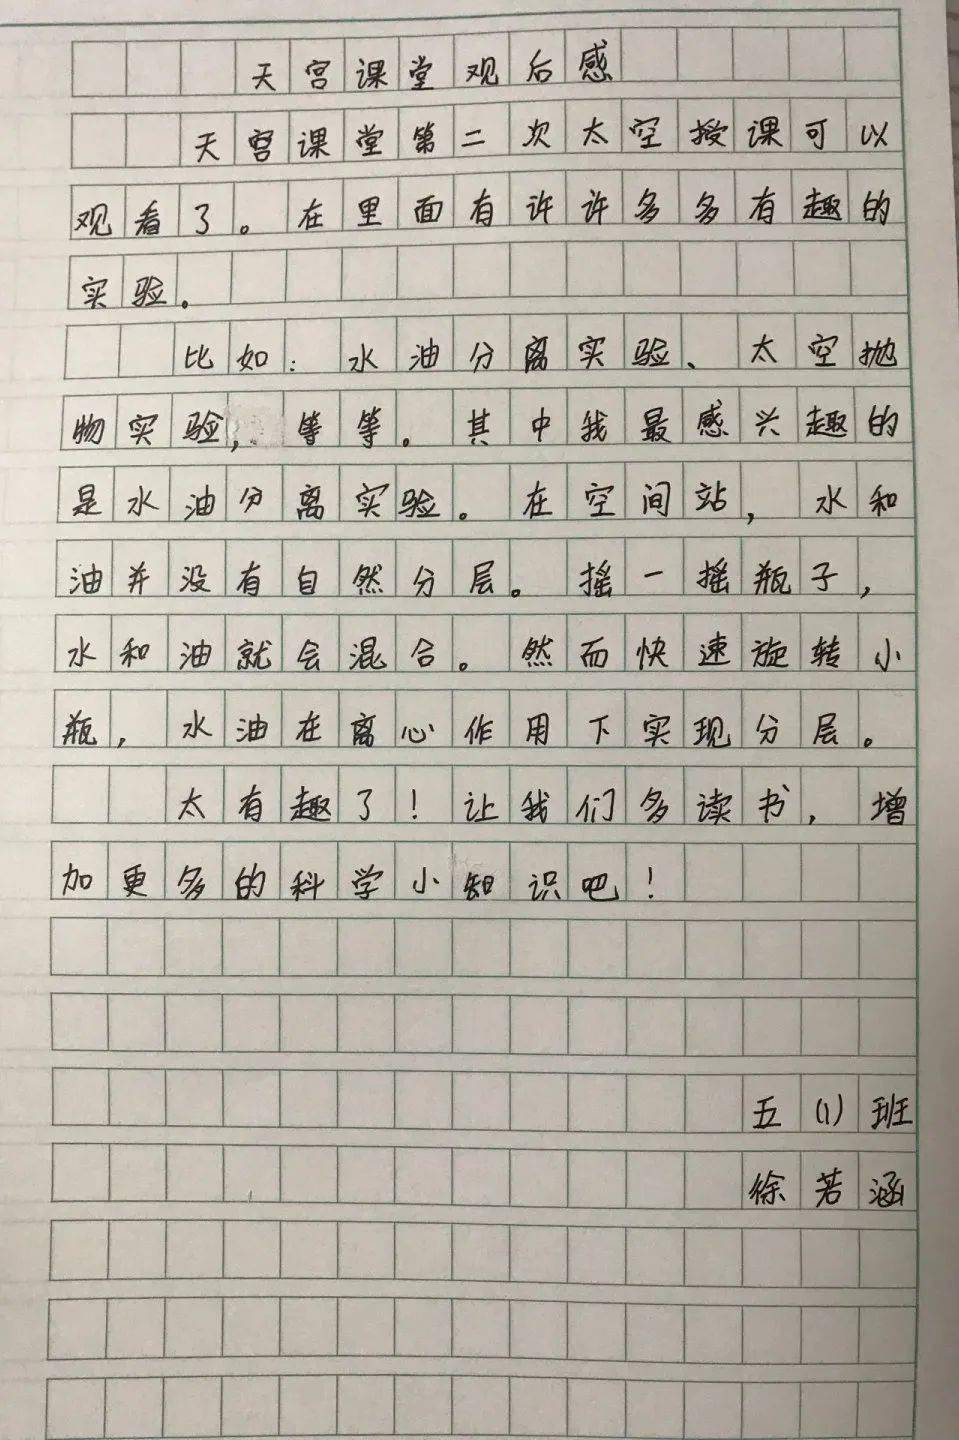 天宫课堂观后感
天宫课堂第二次太空授课可以
观看了。在里面有许许多多有趣的
实验。
比如：水油分离实验、太空抛
物实验，等等。其中我最感兴趣的
是水油分离实验。在空间站，水和
油并没有自然分层。摇一摇瓶子，
水和油就会混合。然而快速旋转小
瓶，水油在离心作用下实现分层。
太有趣了！让我们多读书，增
加更多的科学小知识吧！
五(1)班
徐若涵